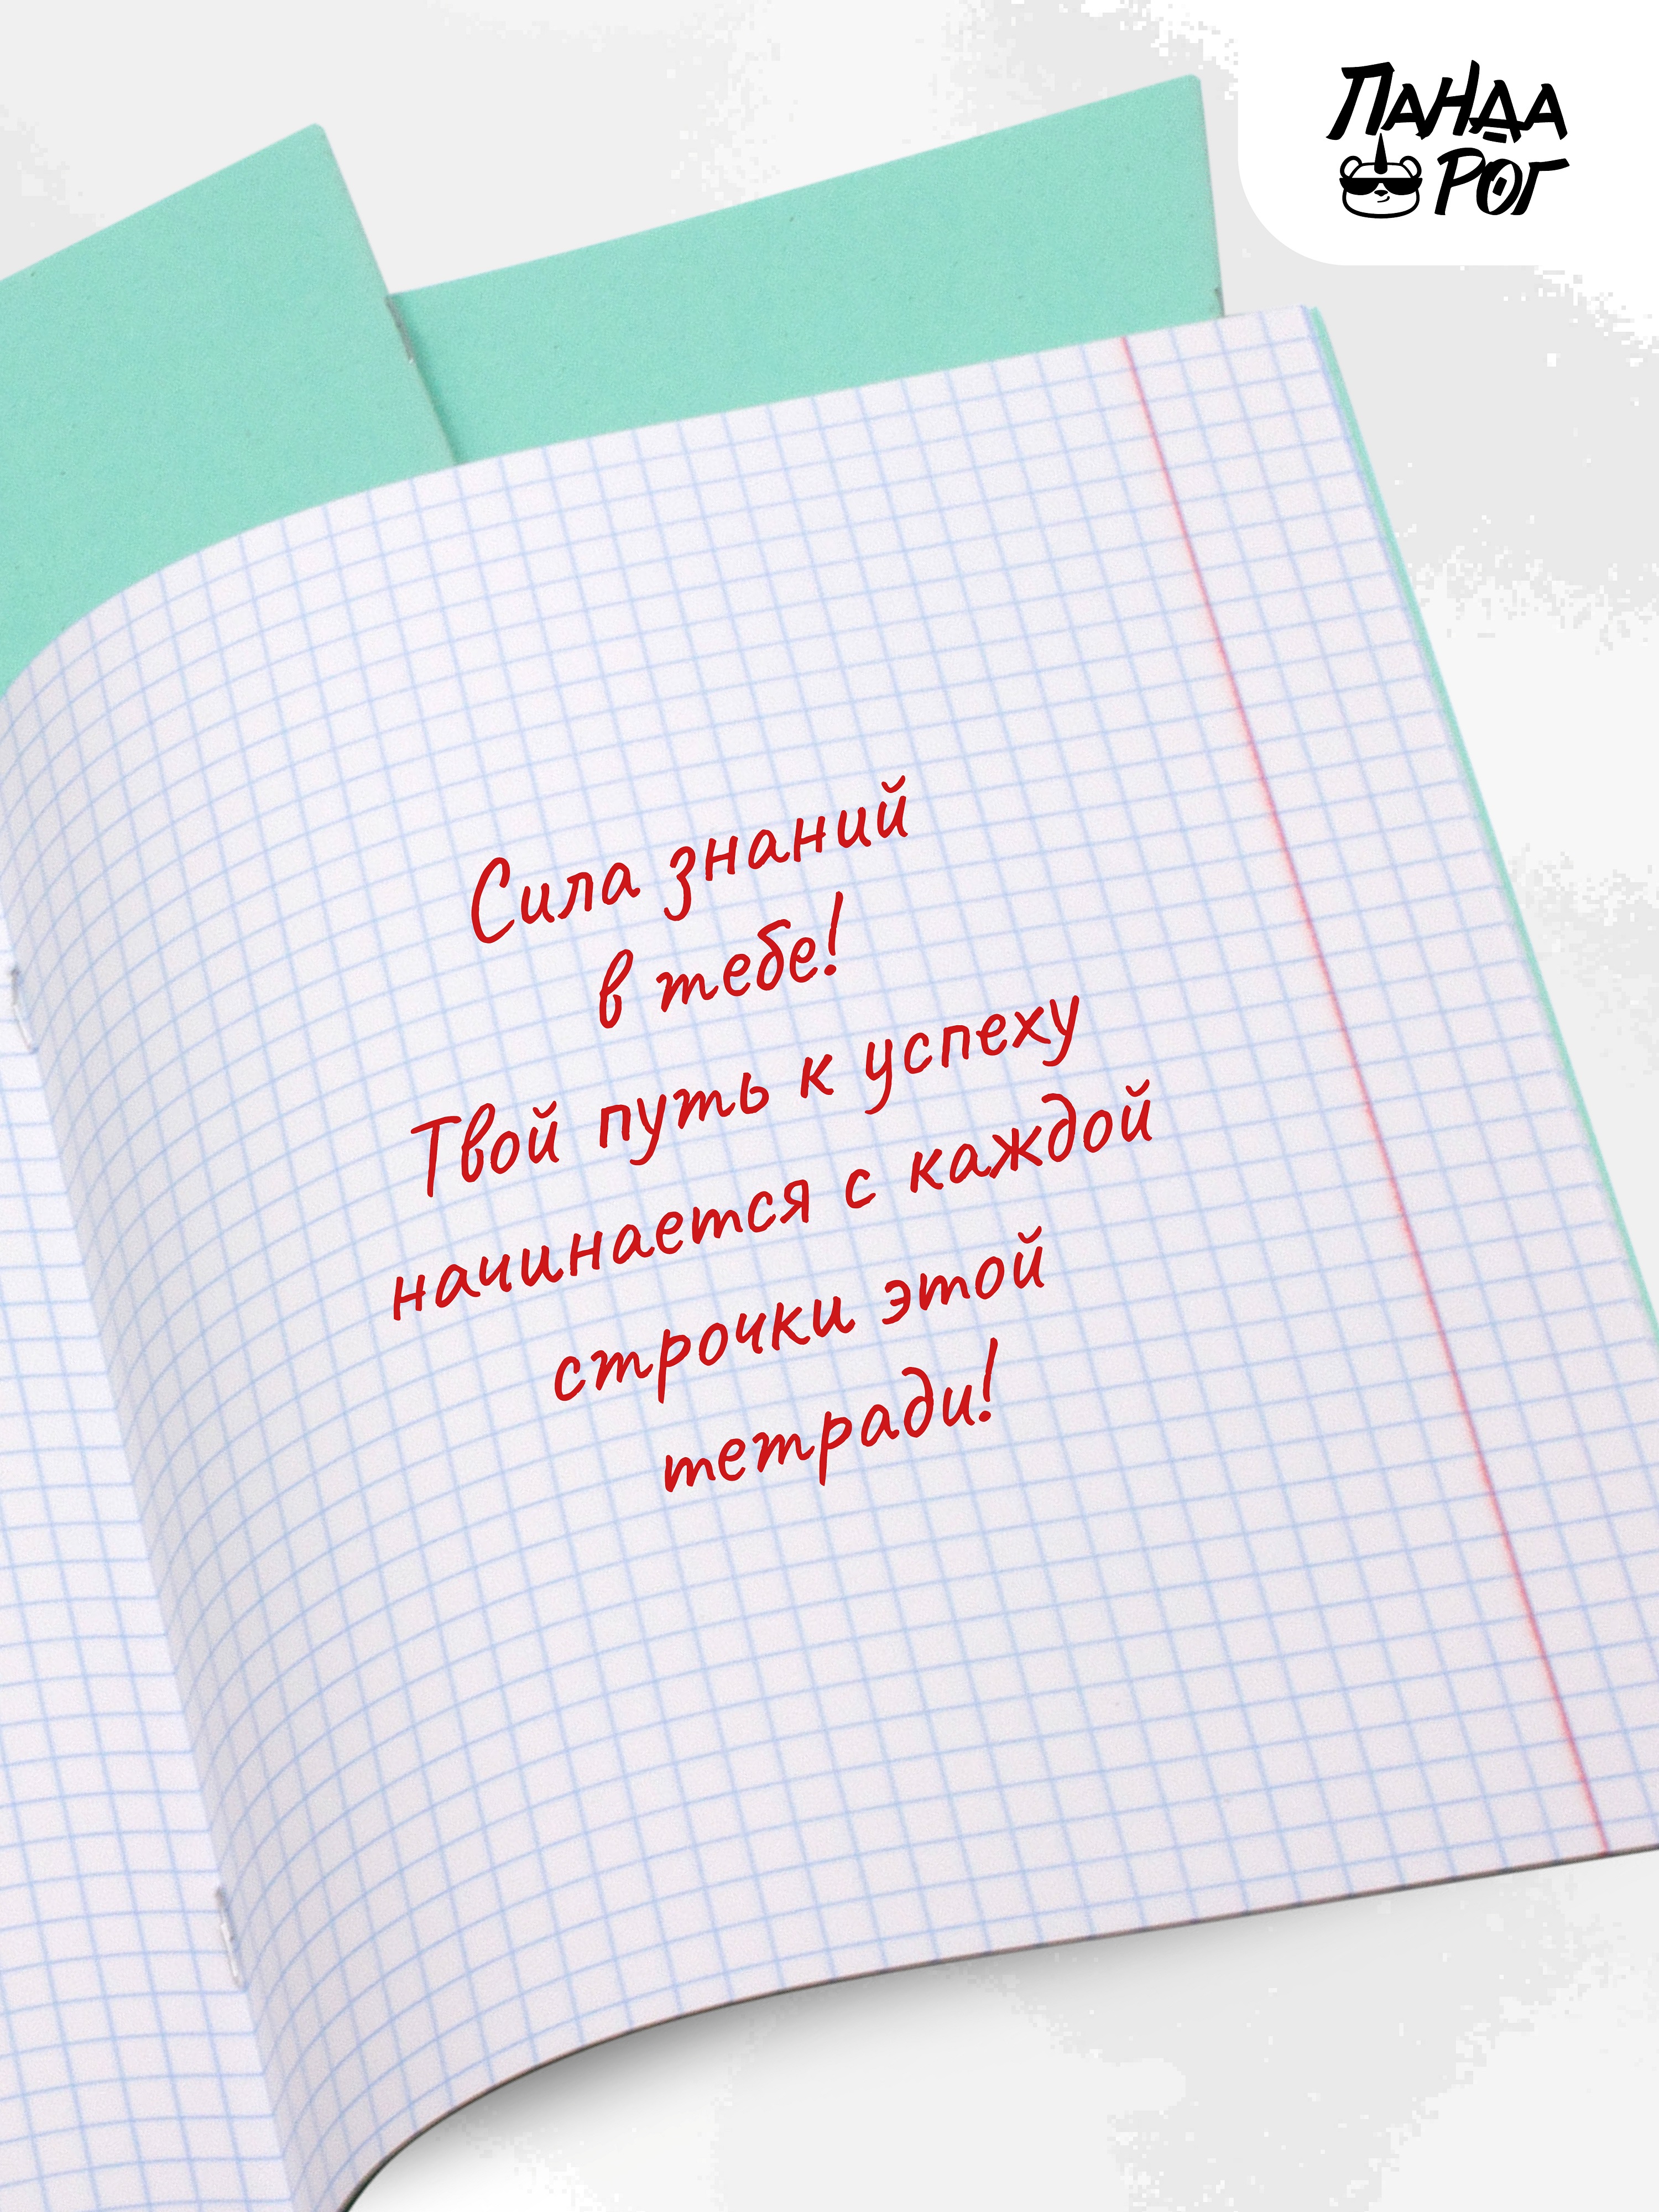 ПАНДА
РОГ
Сила знаний
в тебе!
Твой путь к успеху
начинается с каждой
строчки этой
тетради!